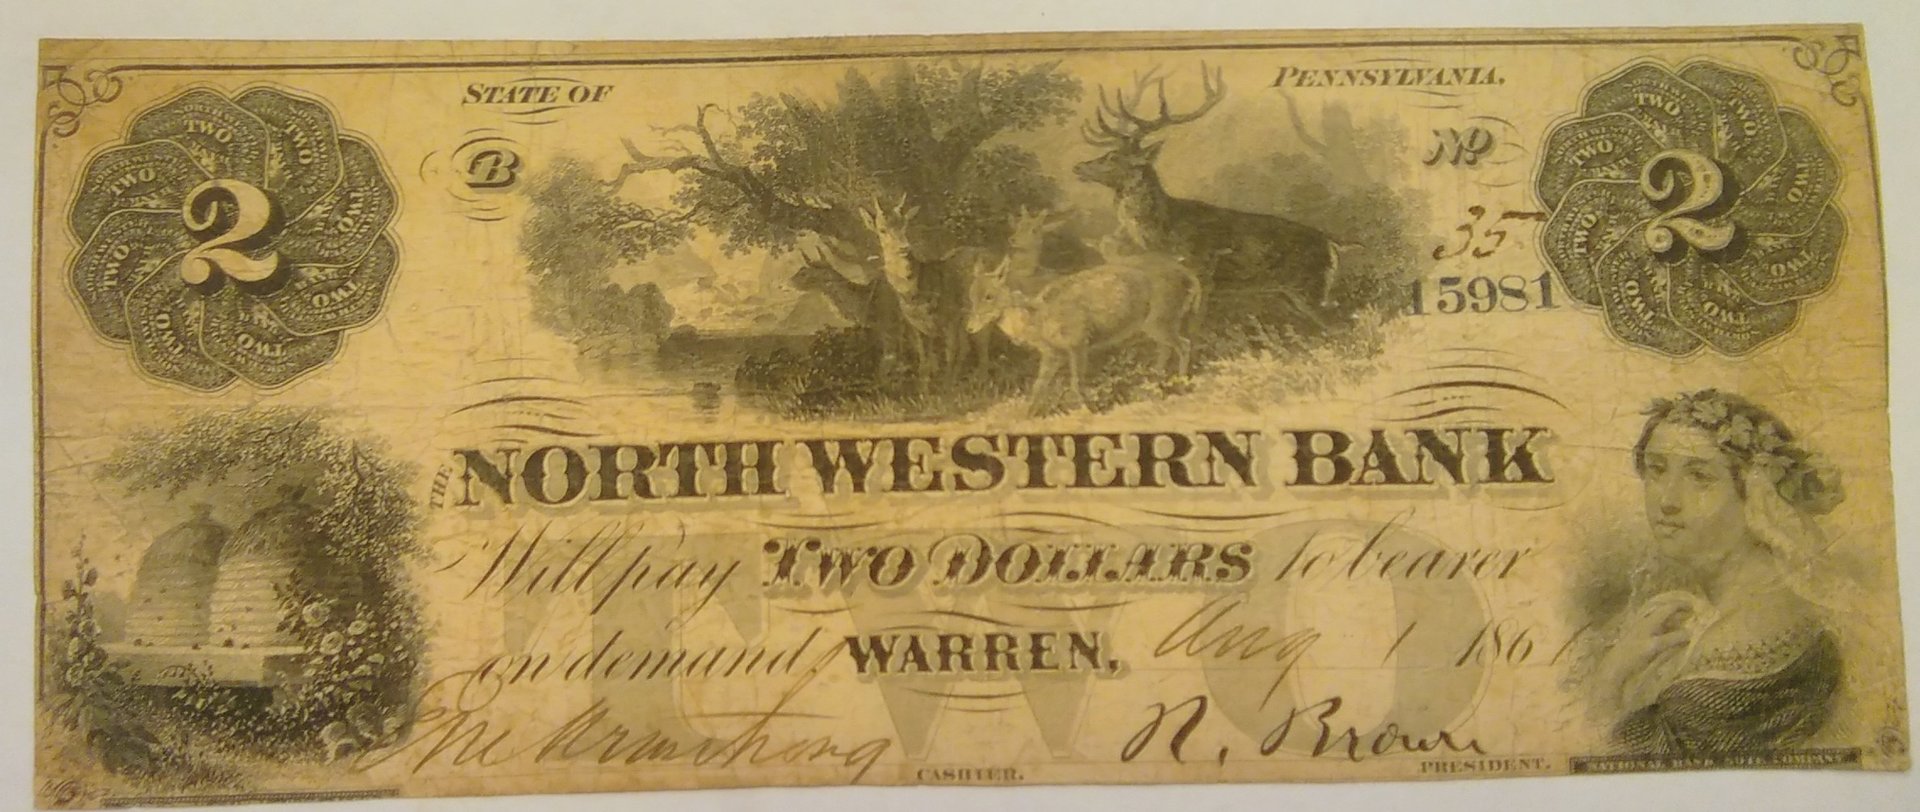 STATE OF
PENNSYLVANIA.
2
TWO TWO TWO TWO TWO TWO TWO TWO
B
No
35
15981
2
TWO TWO TWO TWO TWO TWO TWO TWO
THE NORTH WESTERN BANK
Will pay TWO DOLLARS to bearer
on demand, WARREN, Aug 1 1861
TWO
Armstrong
CASHIER.
R. Brown
PRESIDENT.
NATIONAL BANK NOTE COMPANY